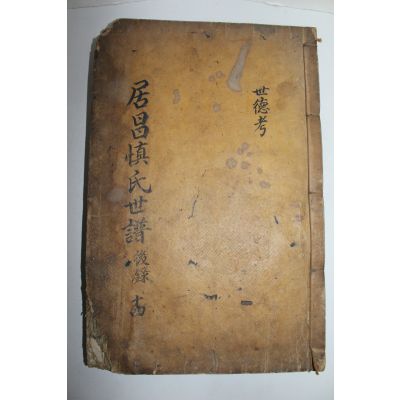 世德考
居昌愼氏世譜 後錄 十四